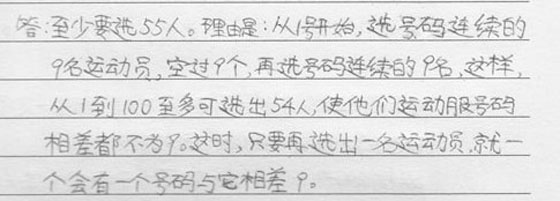 答:至少要选55人。理由是:从1号开始,选号码连续的
9名运动员,空过9个,再选号码连续的9名,这样,
从1到100至多可选出54人,使他们运动服号码
相差都不为9。这时,只要再选出一名运动员,就一
个会有一个号码与它相差9。